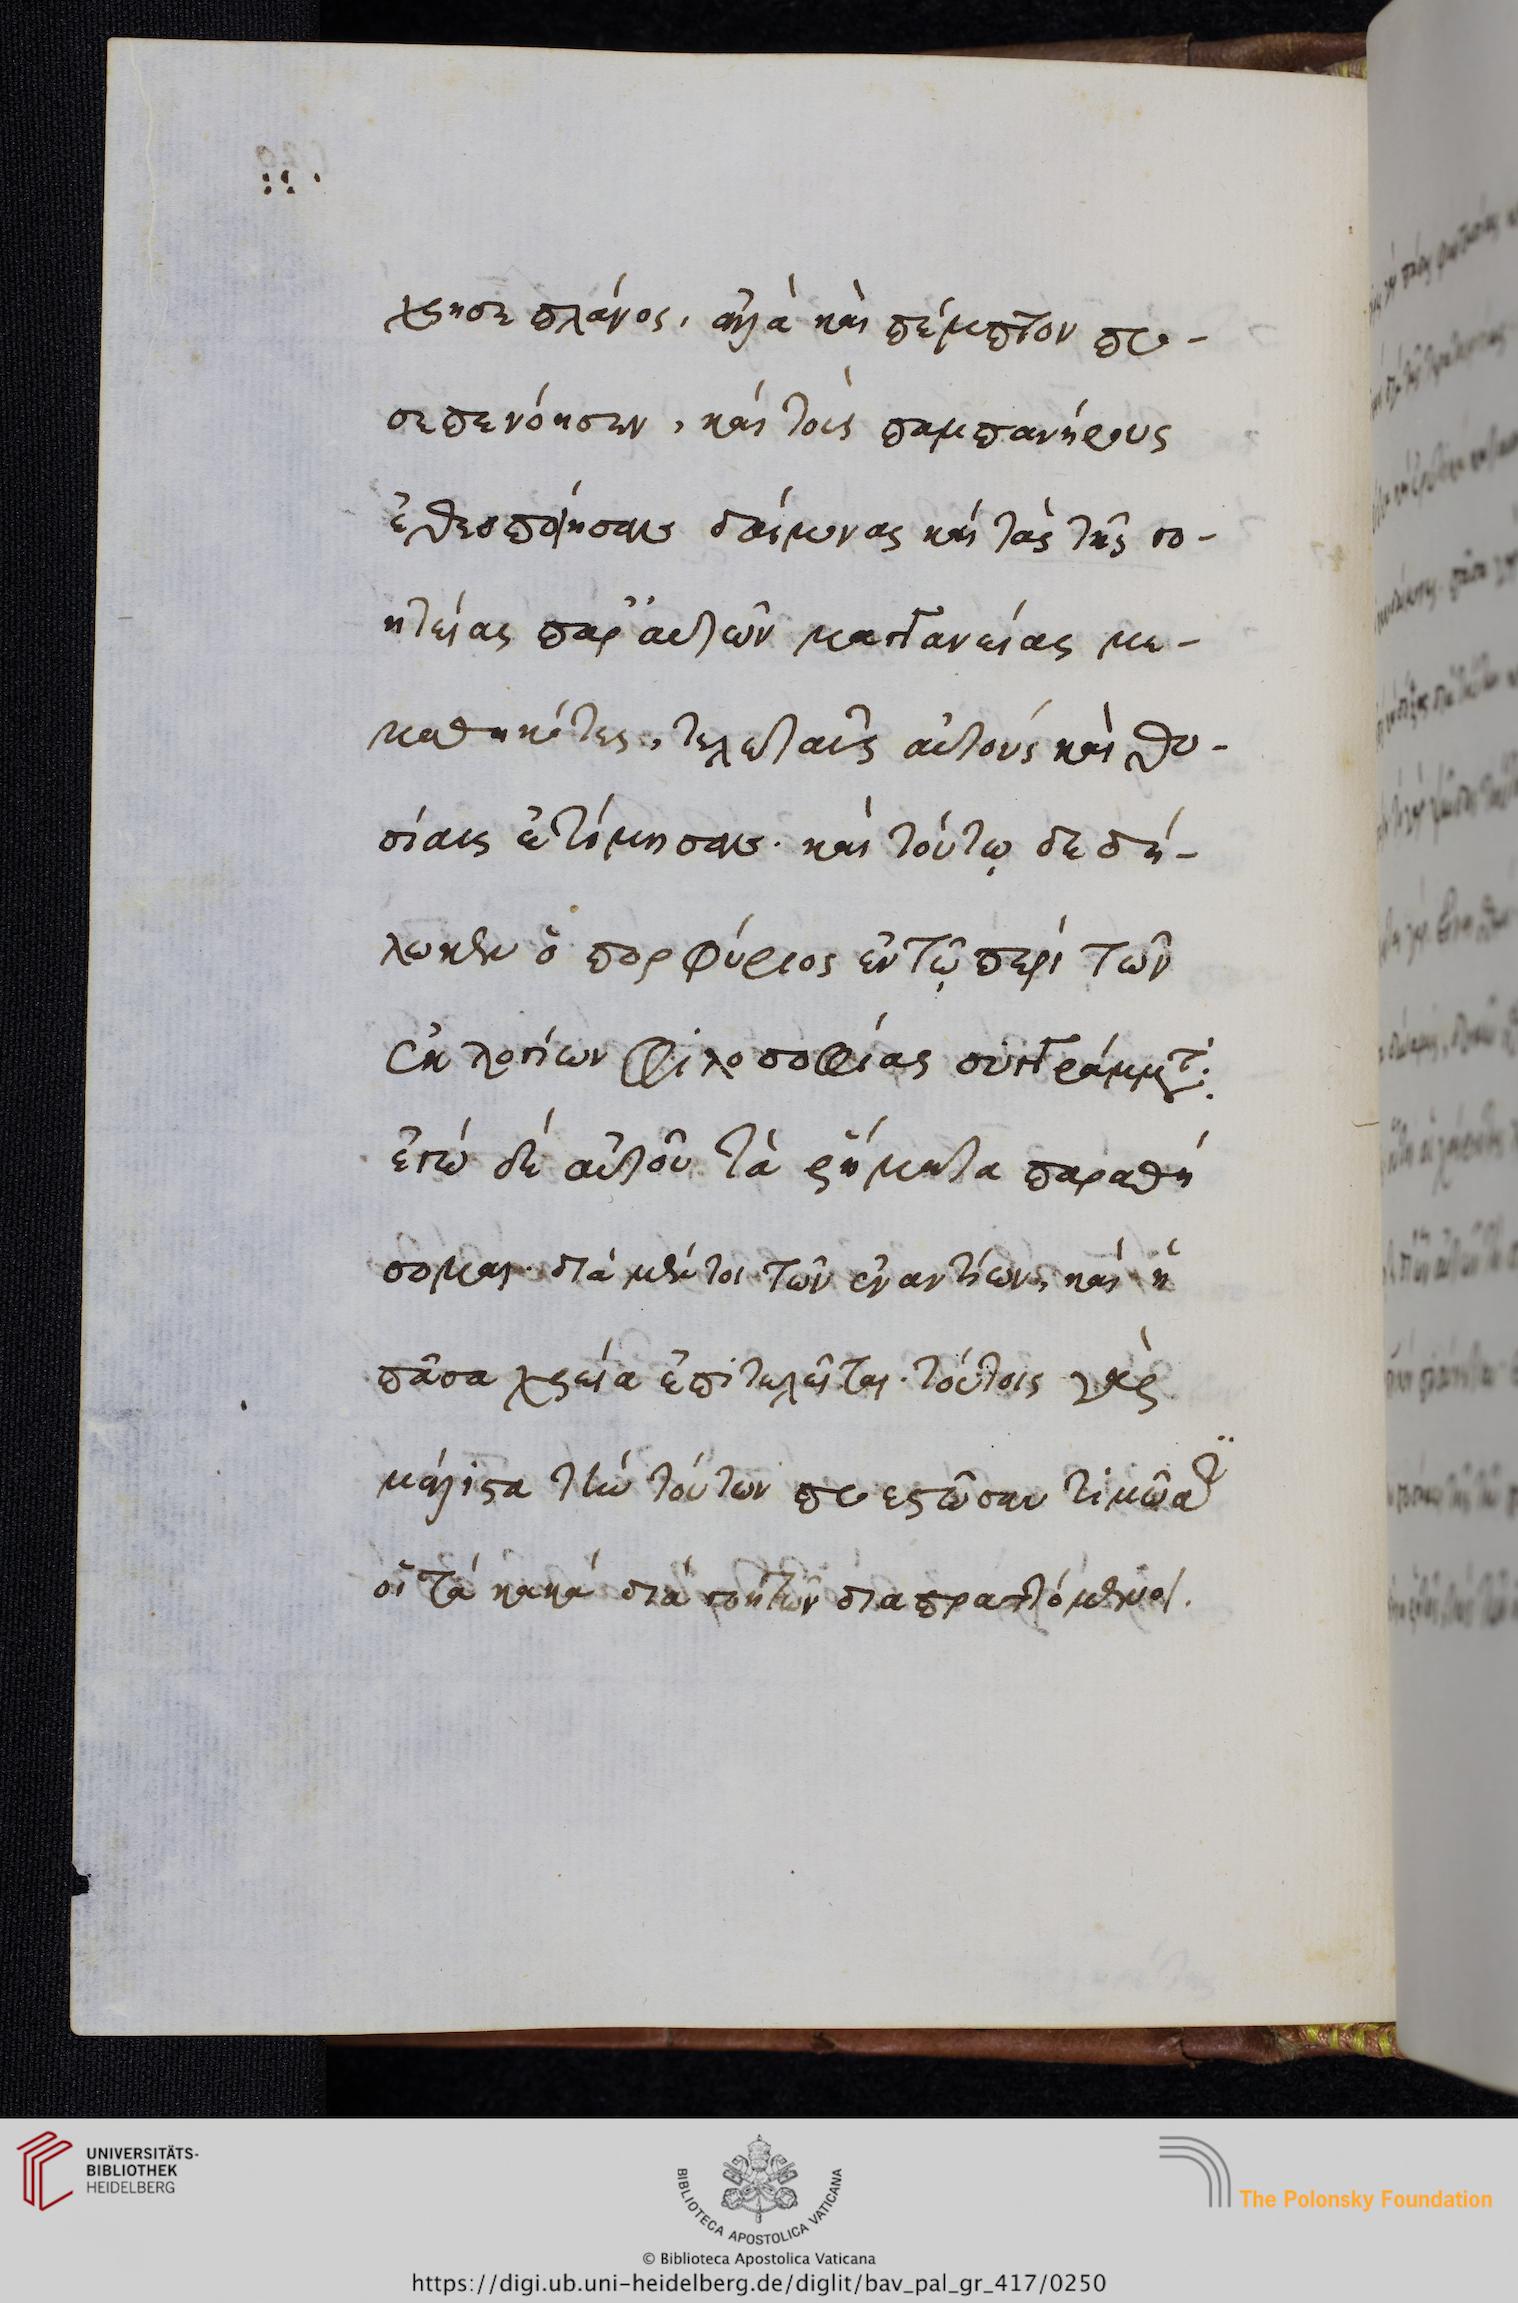 χρησε πλάνος, ἀλλὰ καὶ πέμπτον προ-
σεπενόησεν, καὶ τοὺς παμπονήρους
ἐθεοποίησαν δαίμονας καὶ τὰς τῆς γο-
ητείας παρ' αὐτῶν μαγγανείας με-
μαθηκότες, τελεταῖς αὐτοὺς καὶ θυ-
σίαις ἐτίμησαν. καὶ τούτῳ δεδή-
λωκεν ὁ πορφύριος ἐν τῷ περὶ τῶν
ἐκ λογίων φιλοσοφίας συγγράμματι.
ἐγὼ δὲ αὐτοῦ τὰ ῥήματα παραθή
σομαι. διὰ μέντοι τῶν ἐναντίων, καὶ ἡ
πᾶσα χρεία ἐπιτελεῖται. τούτοις γὰρ
μάλιστα τὴν τούτων προεστῶσαν τιμῶσιν
οἱ τὰ κακὰ διὰ γοητῶν διαπραττόμενοι.
UNIVERSITÄTS-
BIBLIOTHEK
HEIDELBERG
BIBLIOTECA APOSTOLICA VATICANA
The Polonsky Foundation
© Biblioteca Apostolica Vaticana
https://digi.ub.uni-heidelberg.de/diglit/bav_pal_gr_417/0250